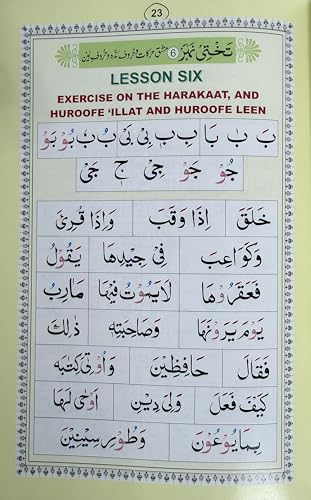 23
تختی نمبر 6 مشق حرکات و حروف مدہ و حروف لین
LESSON SIX
EXERCISE ON THE HARAKAAT, AND
HUROOFE 'ILLAT AND HUROOFE LEEN
بَ بٰ بَا بِ بٖ بِیْ بَیْ بُ بٗ بُوْ بَوْ
جُوْ جَوْ جِیْ جٖ جَیْ
خَلَقَ اِذَا وَقَبَ وَاِذَا قُرِئَ
وَكَوَاعِبَ فِیْ جِیْدِهَا یَقُوْلُ
فَعَقَرُوْهَا لَایَمُوْتُ فِیْهَا مَاٰرِبُ
یَوْمَ یَرَوْنَهَا وَصَاحِبَتِهٖ ذٰلِكَ
فَقَالَ حَافِظِیْنَ وَاُوْتِیَ كِتٰبَهٗ
كَیْفَ فَعَلَ وَلِیَ دِیْنِ اَوْحٰی لَهَا
بِمَا یُوْعُوْنَ وَطُوْرِ سِیْنِیْنَ